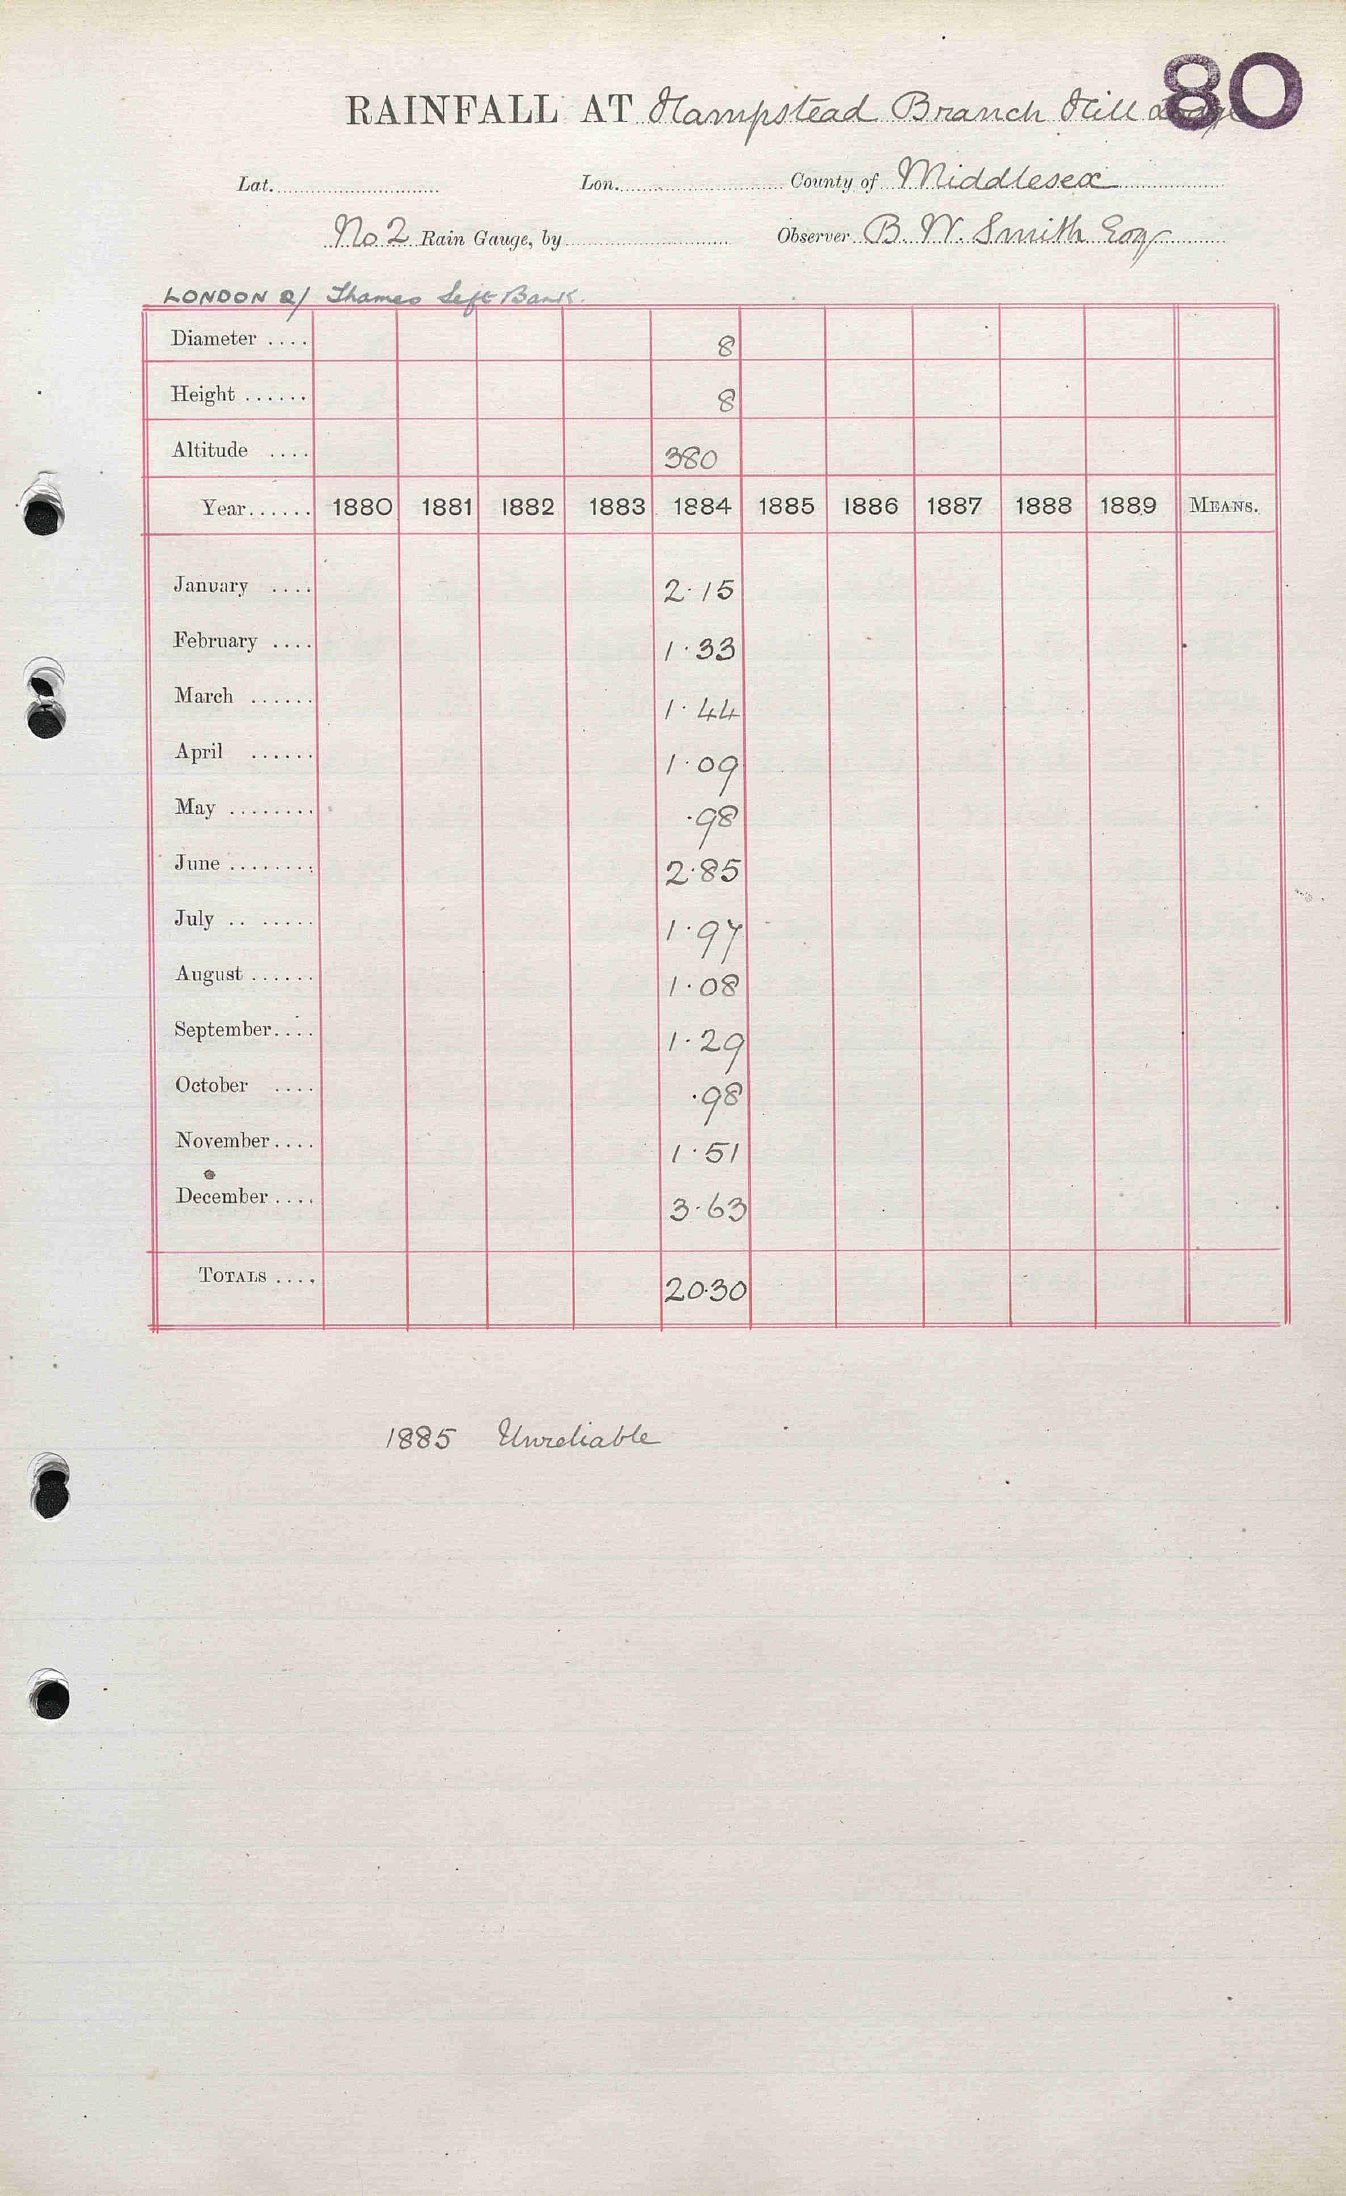 80
RAINFALL AT Hampstead Branch Hill Lodge
Lat. Lon. County of Middlesex
No 2 Rain Gauge, by Observer B. W. Smith Esq
LONDON 2/ Thames Left Bank.
Diameter .... 8
Height ...... 8
Altitude .... 380
Year...... 1880 1881 1882 1883 1884 1885 1886 1887 1888 1889 MEANS.
January .... 2.15
February .... 1.33
March ...... 1.44
April ...... 1.09
May ........ .98
June ........ 2.85
July .. ...... 1.97
August ...... 1.08
September.... 1.29
October .... .98
November.... 1.51
December.... 3.63
TOTALS .... 20.30
1885 Unreliable